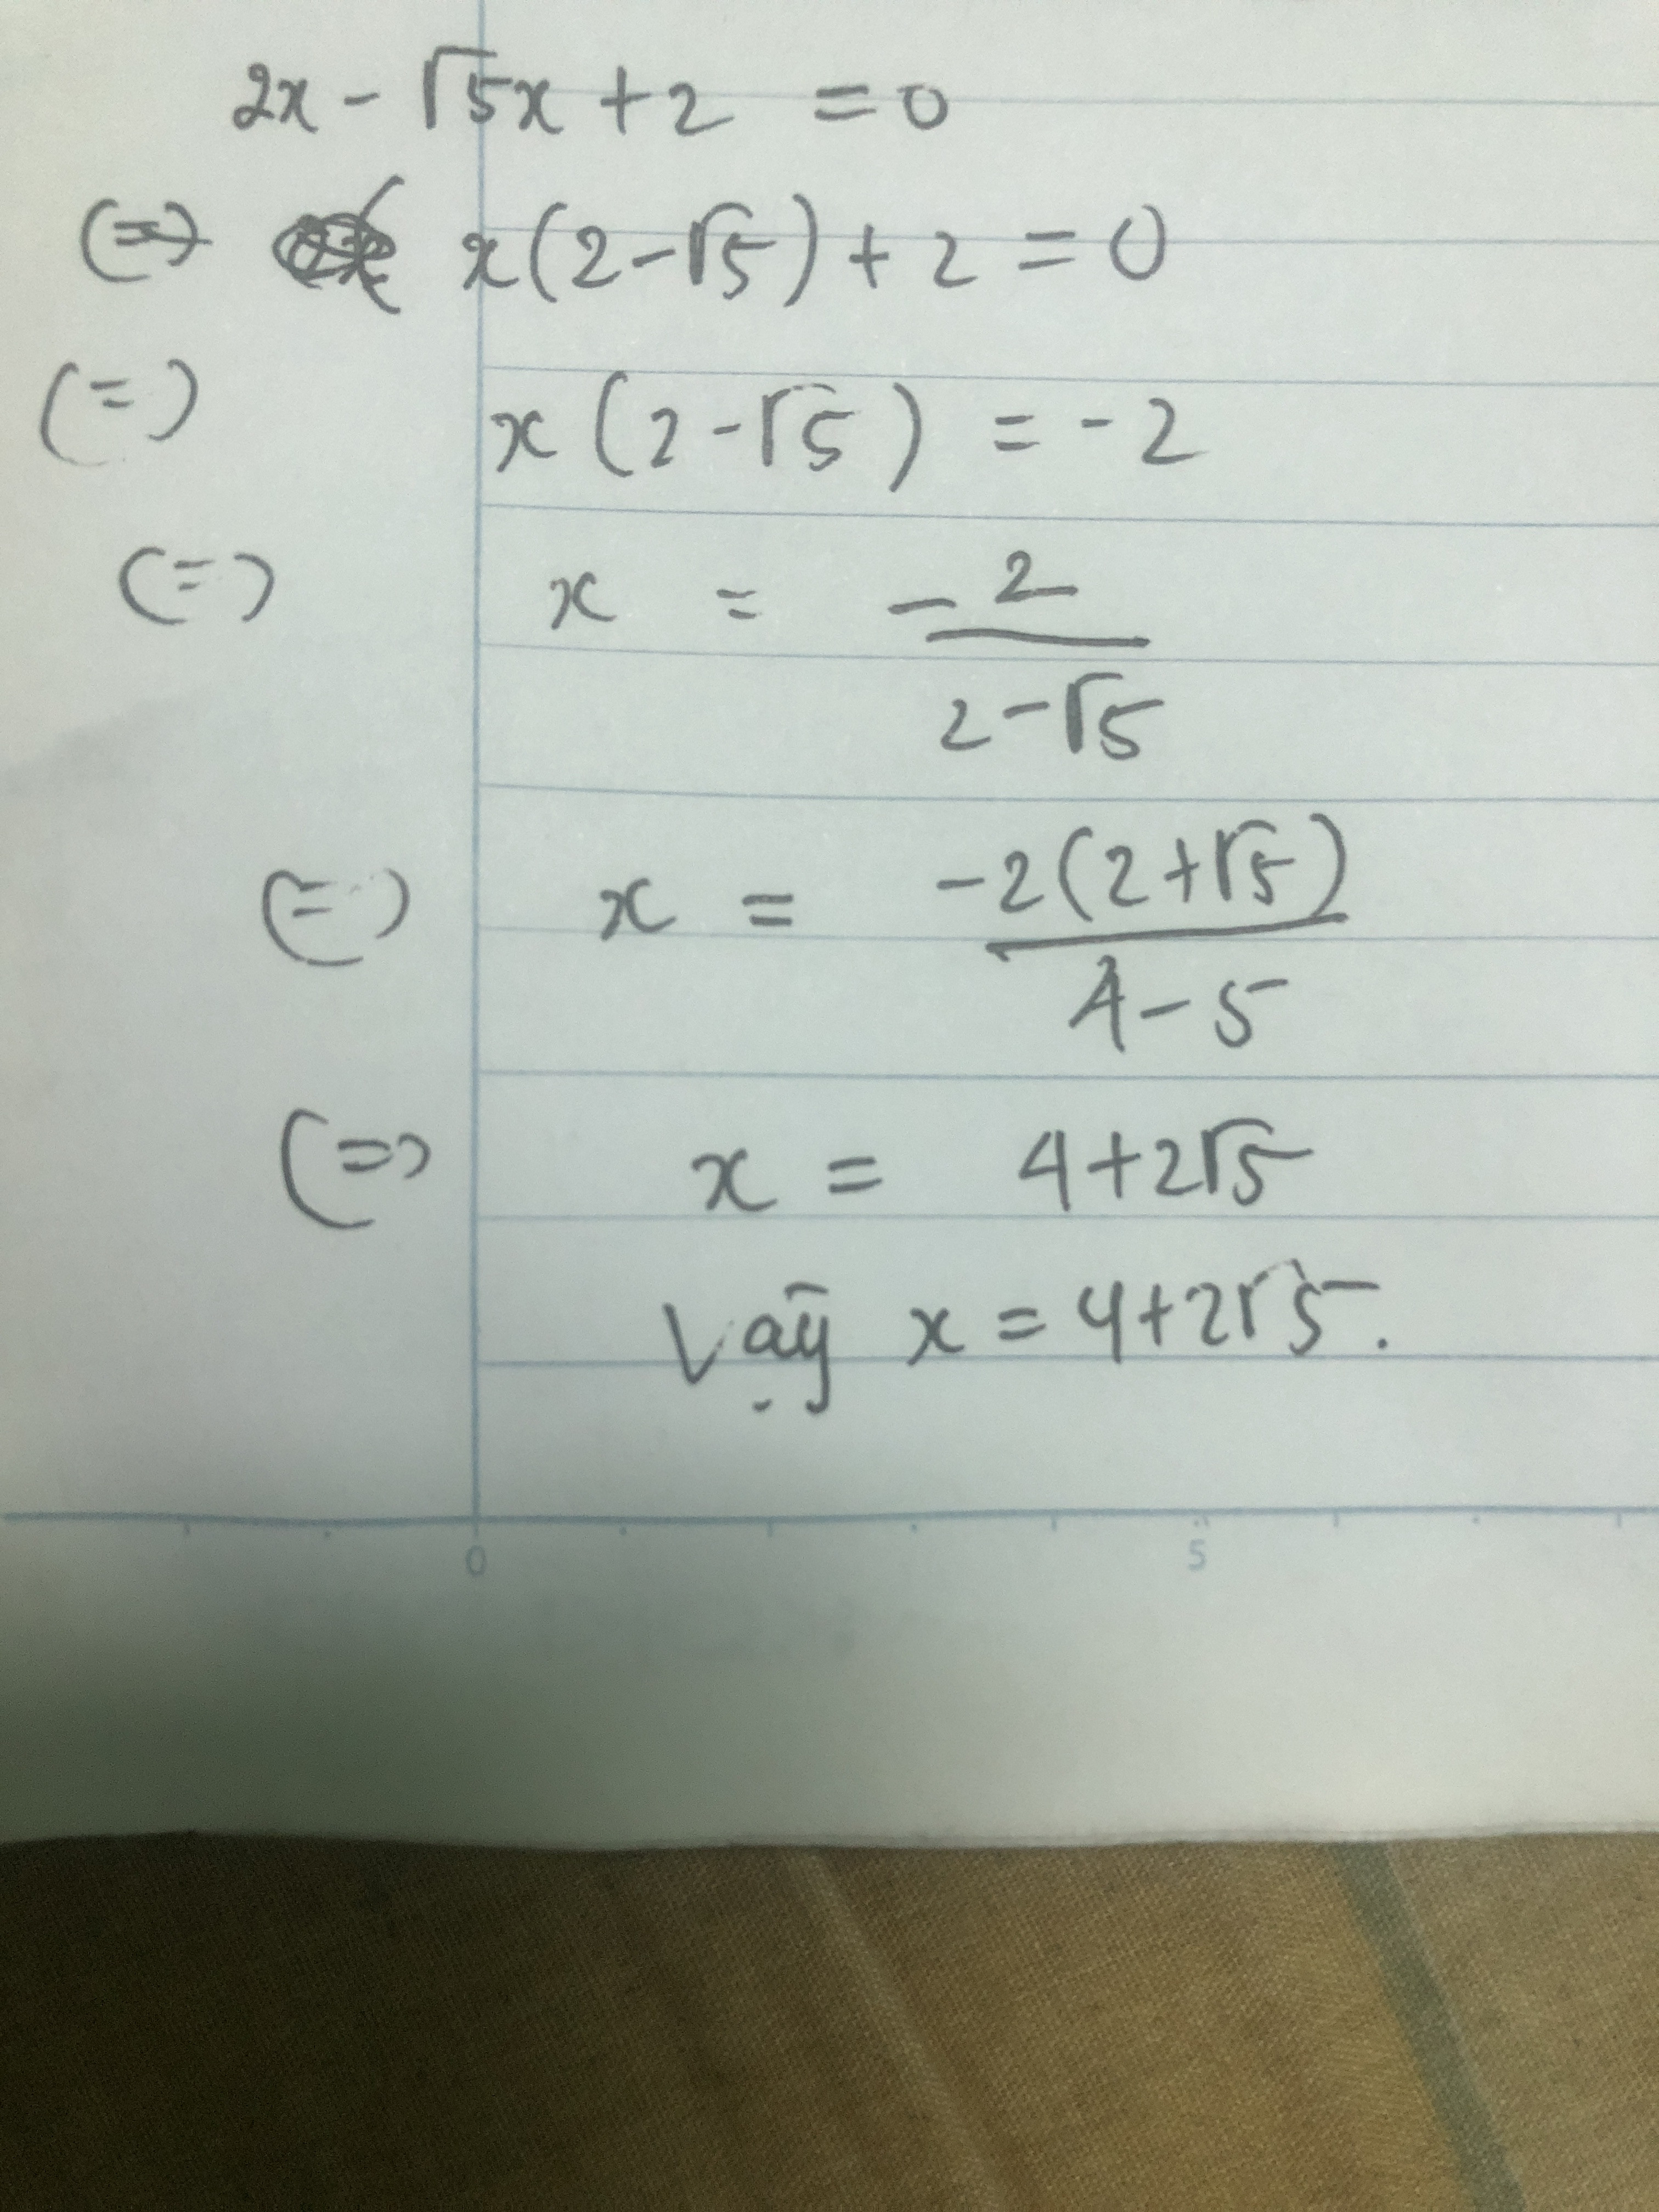 2x - √5x + 2 = 0
(=) x(2-√5) + 2 = 0
(=) x(2-√5) = -2
(=) x = -2/(2-√5)
(=) x = -2(2+√5)/(4-5)
(=) x = 4+2√5
Vậy x = 4+2√5.
0 5